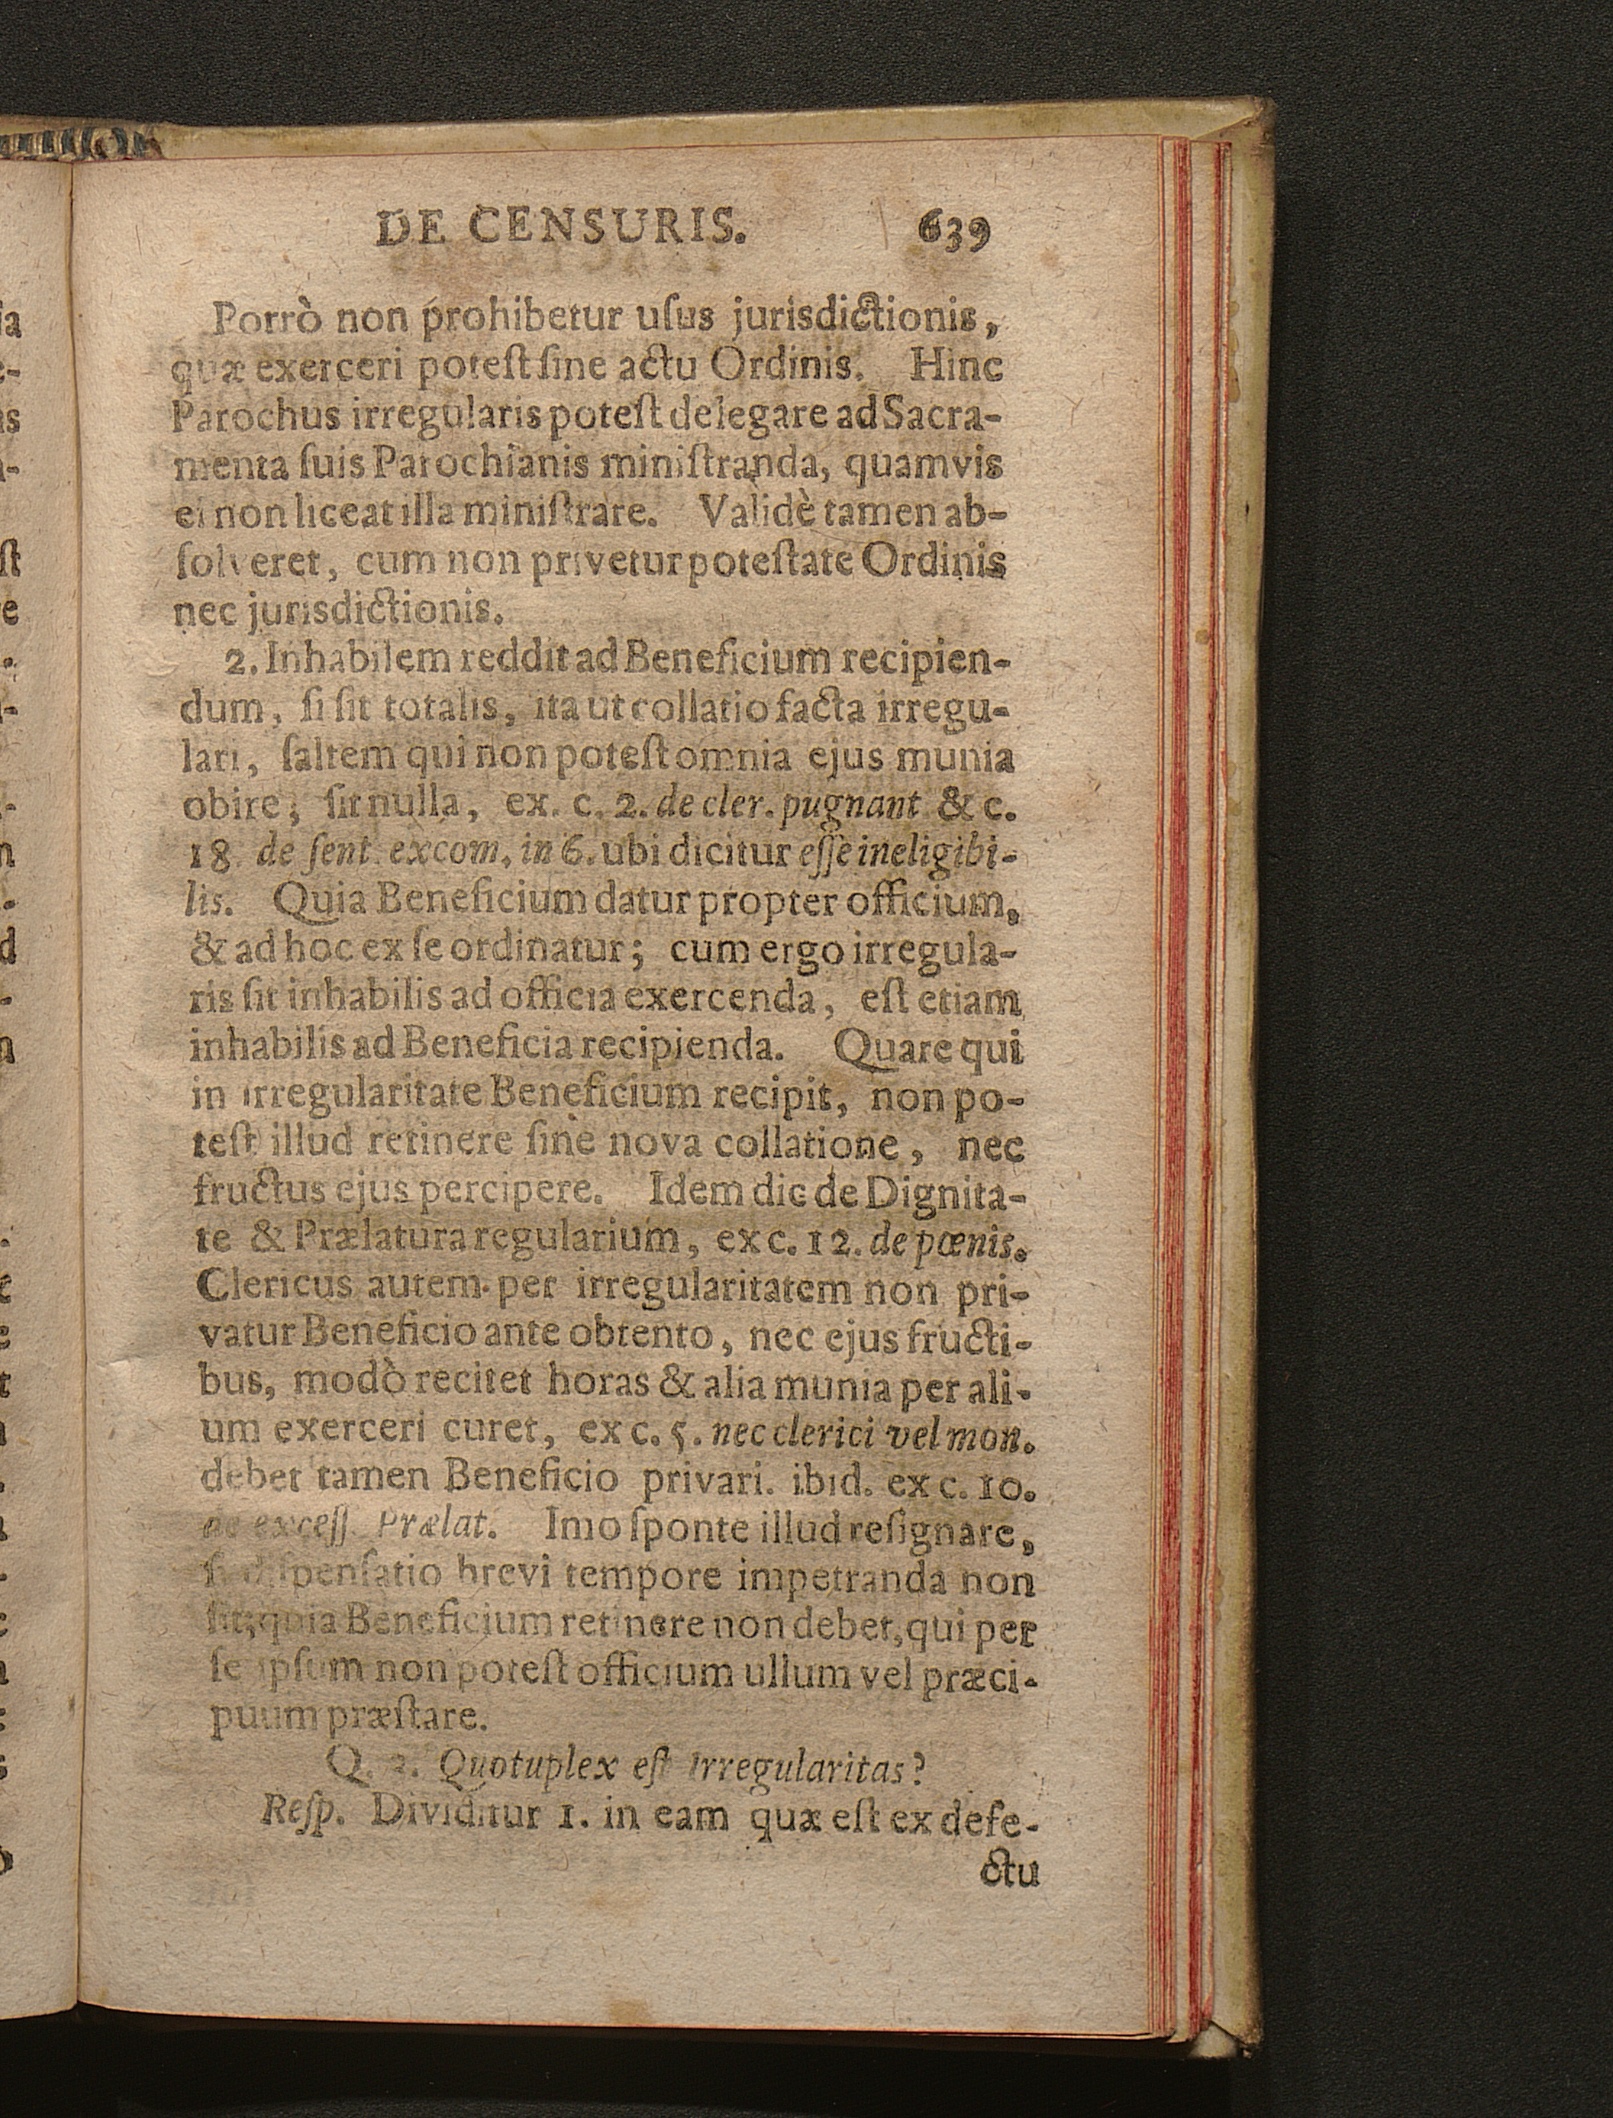 DE CENSURIS. 639
Porrò non prohibetur uſus jurisdictionis,
quæ exerceri poteſt ſine actu Ordinis. Hinc
Parochus irregularis poteſt delegare ad Sacra-
menta ſuis Parochianis miniſtranda, quamvis
ei non liceat illa miniſtrare. Validè tamen ab-
ſolveret, cum non privetur poteſtate Ordinis
nec jurisdictionis.
2. Inhabilem reddit ad Beneficium recipien-
dum, ſi ſit totalis, ita ut collatio facta irregu-
lari, ſaltem qui non poteſt omnia ejus munia
obire, ſit nulla, ex. c. 2. de cler. pugnant & c.
18. de ſent. excom. in 6. ubi dicitur eſſe ineligibi-
lis. Quia Beneficium datur propter officium,
& ad hoc ex ſe ordinatur; cum ergo irregula-
ris ſit inhabilis ad officia exercenda, eſt etiam
inhabilis ad Beneficia recipienda. Quare qui
in irregularitate Beneficium recipit, non po-
teſt illud retinere ſine nova collatione, nec
fructus ejus percipere. Idem dic de Dignita-
te & Prælatura regularium, ex c. 12. de pœnis.
Clericus autem per irregularitatem non pri-
vatur Beneficio ante obtento, nec ejus fructi-
bus, modò recitet horas & alia munia per ali-
um exerceri curet, ex c. 5. nec clerici vel mon.
debet tamen Beneficio privari. ibid. ex c. 10.
de exceſſ. Prælat. Imo ſponte illud reſignare,
ſi diſpenſatio brevi tempore impetranda non
ſit; quia Beneficium retinere non debet, qui per
ſe ipſum non poteſt officium ullum vel præci-
puum præſtare.
Q. 2. Quotuplex eſt Irregularitas?
Reſp. Dividitur 1. in eam quæ eſt ex defe-
ctu